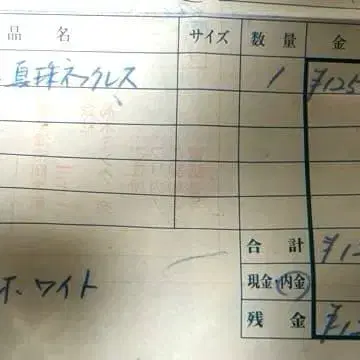 品 名 サイズ 数 量 金
真珠ネックレス 1 ¥125
合 計 ¥12
現金・内金
ホワイト
残 金 ¥12